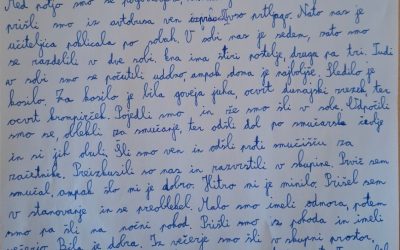 Med potjo smo se pogovarjali,
prišli smo iz avtobusa ven prtljago. Nato nas je
učiteljica poklicala po sobah. V sobi nas je sedem, zato smo
se razdelili v dve sobi. Ena ima štiri postelje, druga pa tri. Tudi
v sobi smo se počutili udobno, ampak doma je najboljše. Sledilo je
kosilo. Za kosilo je bila goveja juha, ocvrt dunajski zrezek ter
ocvrt krompirček. Pojedli smo in že smo šli v sobe. Odpočili
smo se, oblekli za smučanje, ter odšli dol po smučarske čevlje
in si jih obuli. Šli smo ven in odšli proti smučišču za
začetnike. Preizkusili so nas in razvrstili v skupine. Prvič sem
smučal, ampak šlo mi je dobro. Hitro mi je minilo. Prišel sem
v stanovanje in se preoblekel. Malo smo imeli odmora, potem
smo pa šli na nočni pohod. Prišli smo iz pohoda in imeli
večerjo. Bila je dobra. Iz večerje smo šli v skupni prostor,